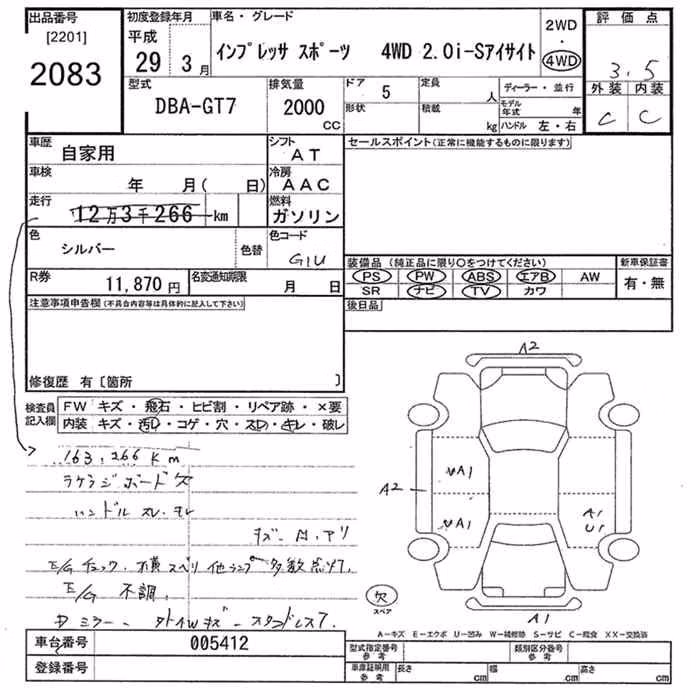 出品番号 初度登録年月 車名・グレード 2WD 評価点
[2201] 平成
2083 29 3月 インプレッサ スポーツ 4WD 2.0i-Sアイサイト 4WD 3.5
型式 排気量 ドア 5 定員 人 ディーラー・並行 外装 内装
DBA-GT7 2000 CC 形状 積載 kg モデル年式 年 C C
ハンドル 左・右
車歴 自家用 シフト AT セールスポイント(正常に機能するものに限ります)
車検 年 月( 日) 冷房 AAC
走行 12万3千266 km 燃料 ガソリン
色 シルバー 色替 色コード G1U
装備品(純正品に限り○をつけてください) 新車保証書
R券 11,870円 名変通知期限 月 日 PS PW ABS エアB AW 有・無
SR ナビ TV カワ
注意事項申告欄(不具合内容等は具体的に記入して下さい) 後日品
修復歴 有〔箇所 〕
検査員記入欄 FW キズ・飛石・ヒビ割・リペア跡・×要
内装 キズ・汚レ・コゲ・穴・スレ・キレ・破レ
163,266 Km
ラゲッジボード欠
ハンドル スレ・キレ
E/Gチェック、横スベリ他ランプ多数点灯
E/G 不調
A2
A2 A1 A1
A1 U1
欠
スペア
A1
A-キズ E-エクボ U-凹み W-補修跡 S-サビ C-腐食 XX-交換済
車台番号 005412 型式指定番号 参考 類別区分番号 参考
登録番号 車庫証明用 参考 長さ cm 幅 cm 高さ cm